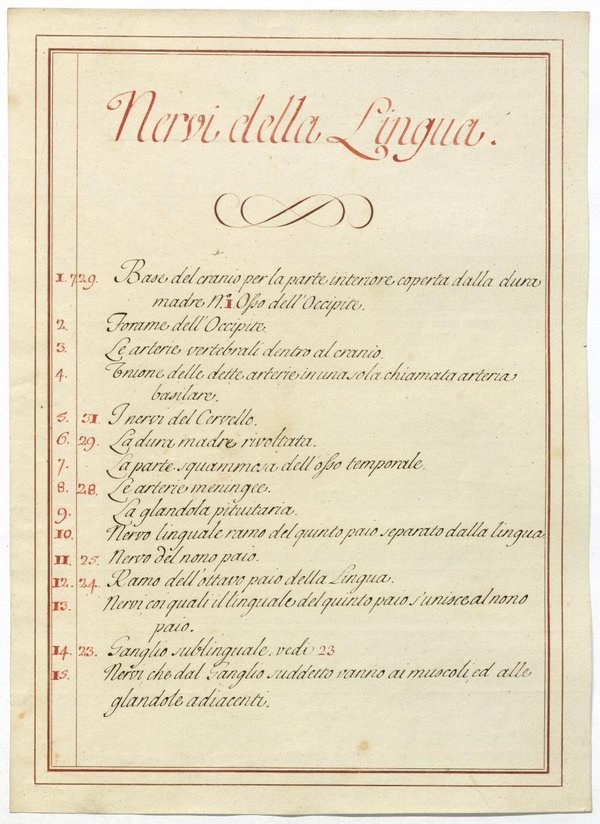 Nervi della Lingua.
1. 729. Base del cranio per la parte interiore coperta dalla dura
madre N.º 1 Osso dell'Occipite.
2. Forame dell'Occipite.
3. Le arterie vertebrali dentro al cranio.
4. Unione delle dette arterie in una sola chiamata arteria
basilare.
5. 31. I nervi del Cervello.
6. 29. La dura madre rivoltata.
7. La parte squammosa dell'osso temporale.
8. 28. Le arterie meningee.
9. La glandola pituitaria.
10. Nervo linguale ramo del quinto paio separato dalla lingua.
11. 25. Nervo del nono paio.
12. 24. Ramo dell'ottavo paio della Lingua.
13. Nervi coi quali il linguale del quinto paio s'unisce al nono
paio.
14. 23. Ganglio sublinguale. vedi 23
15. Nervi, che dal Ganglio suddetto vanno ai muscoli, ed alle
glandole adiacenti.